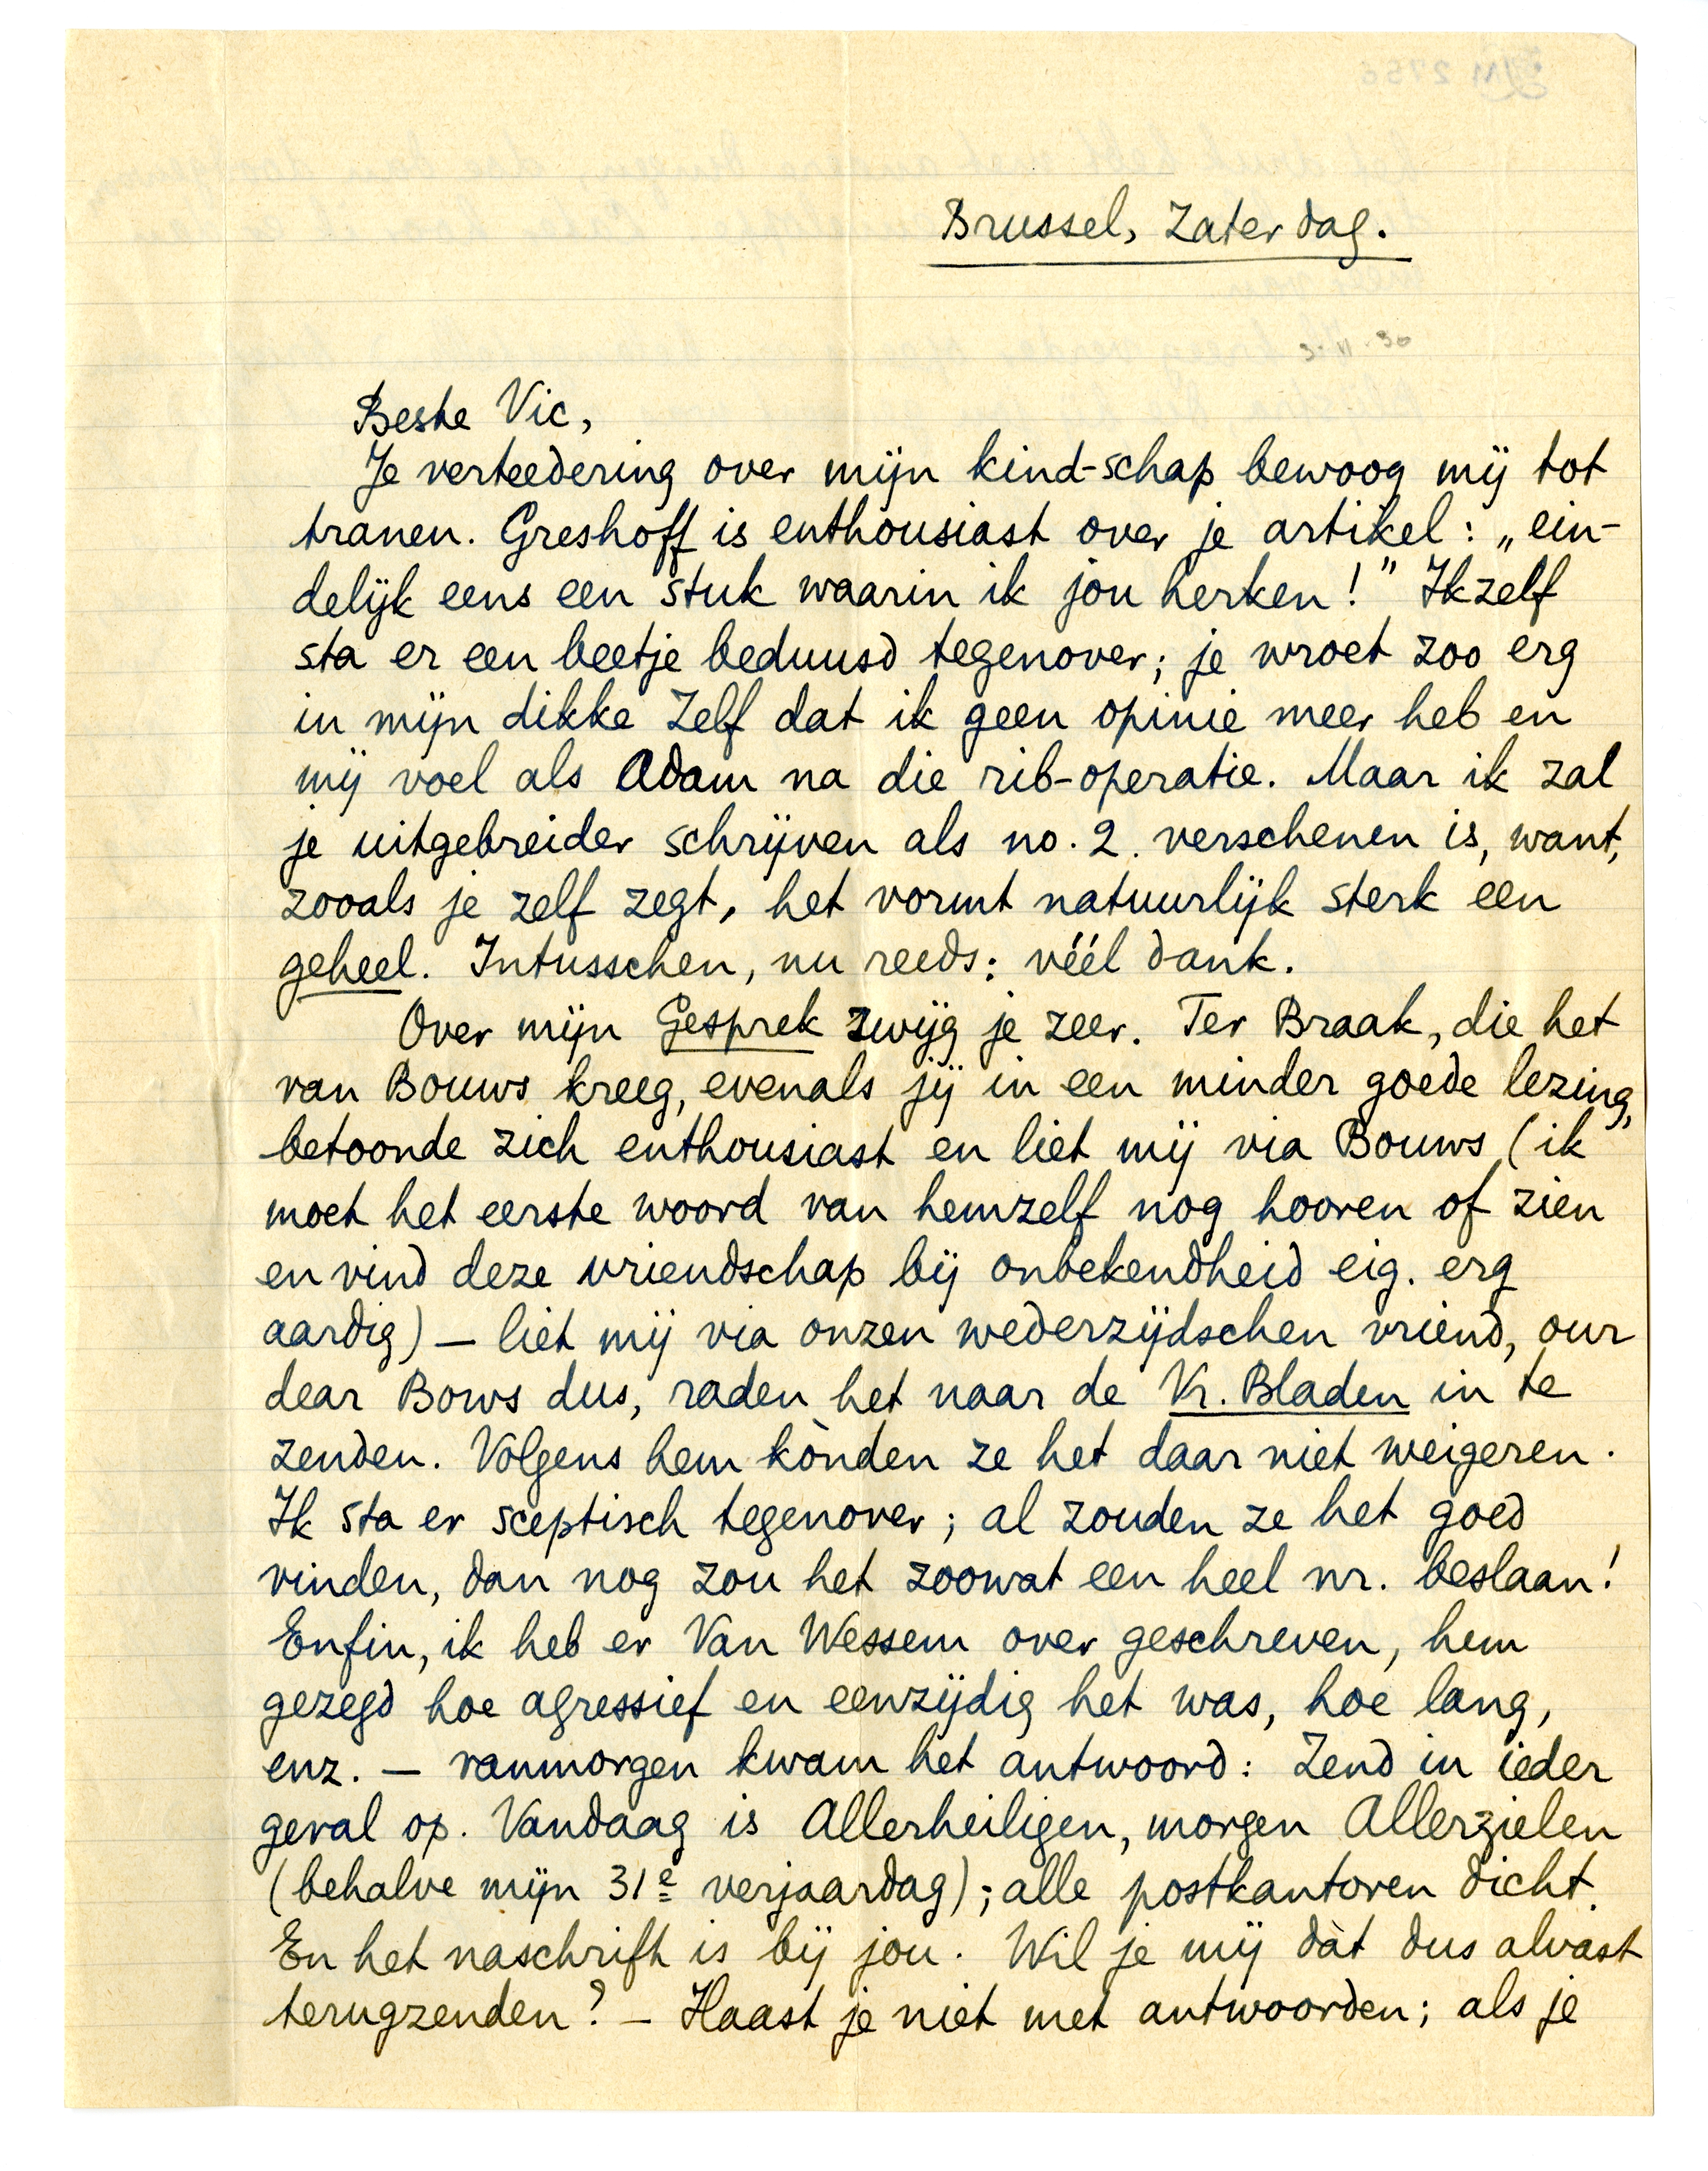 Brussel, Zaterdag.
3. XI. 30
Beste Vic,
Je verteedering over mijn kind-schap bewoog mij tot
tranen. Greshoff is enthousiast over je artikel: „ein-
delijk eens een stuk waarin ik jou herken!” Ikzelf
sta er een beetje beduusd tegenover; je wroet zoo erg
in mijn dikke Zelf dat ik geen opinie meer heb en
mij voel als Adam na die rib-operatie. Maar ik zal
je uitgebreider schrijven als no. 2. verschenen is, want,
zooals je zelf zegt, het vormt natuurlijk sterk een
geheel. Intusschen, nu reeds: véél dank.
Over mijn Gesprek zwijg je zeer. Ter Braak, die het
van Bouws kreeg, evenals jij in een minder goede lezing,
betoonde zich enthousiast en liet mij via Bouws (ik
moet het eerste woord van hemzelf nog hooren of zien
en vind deze vriendschap bij onbekendheid eig. erg
aardig) – liet mij via onzen wederzijdschen vriend, our
dear Bows dus, raden het naar de Vr. Bladen in te
zenden. Volgens hem kònden ze het daar niet weigeren.
Ik sta er sceptisch tegenover; al zouden ze het goed
vinden, dan nog zou het zoowat een heel nr. beslaan!
Enfin, ik heb er Van Wessem over geschreven, hem
gezegd hoe agressief en eenzijdig het was, hoe lang,
enz. – vanmorgen kwam het antwoord: Zend in ieder
geval op. Vandaag is Allerheiligen, morgen Allerzielen
(behalve mijn 31e verjaardag); alle postkantoren dicht.
En het naschrift is bij jou. Wil je mij dàt dus alvast
terugzenden? – Haast je niet met antwoorden; als je